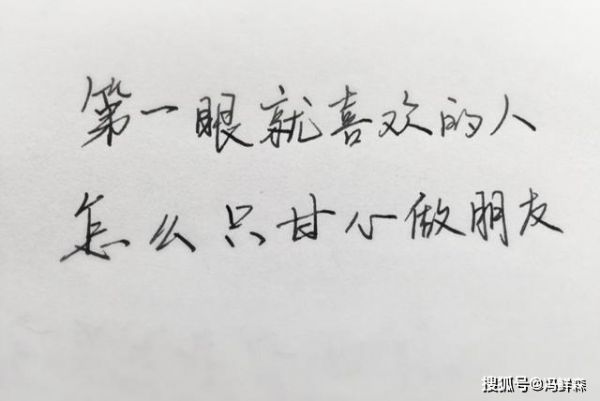 第一眼就喜欢的人
怎么只甘心做朋友
搜狐号@冯鲜森